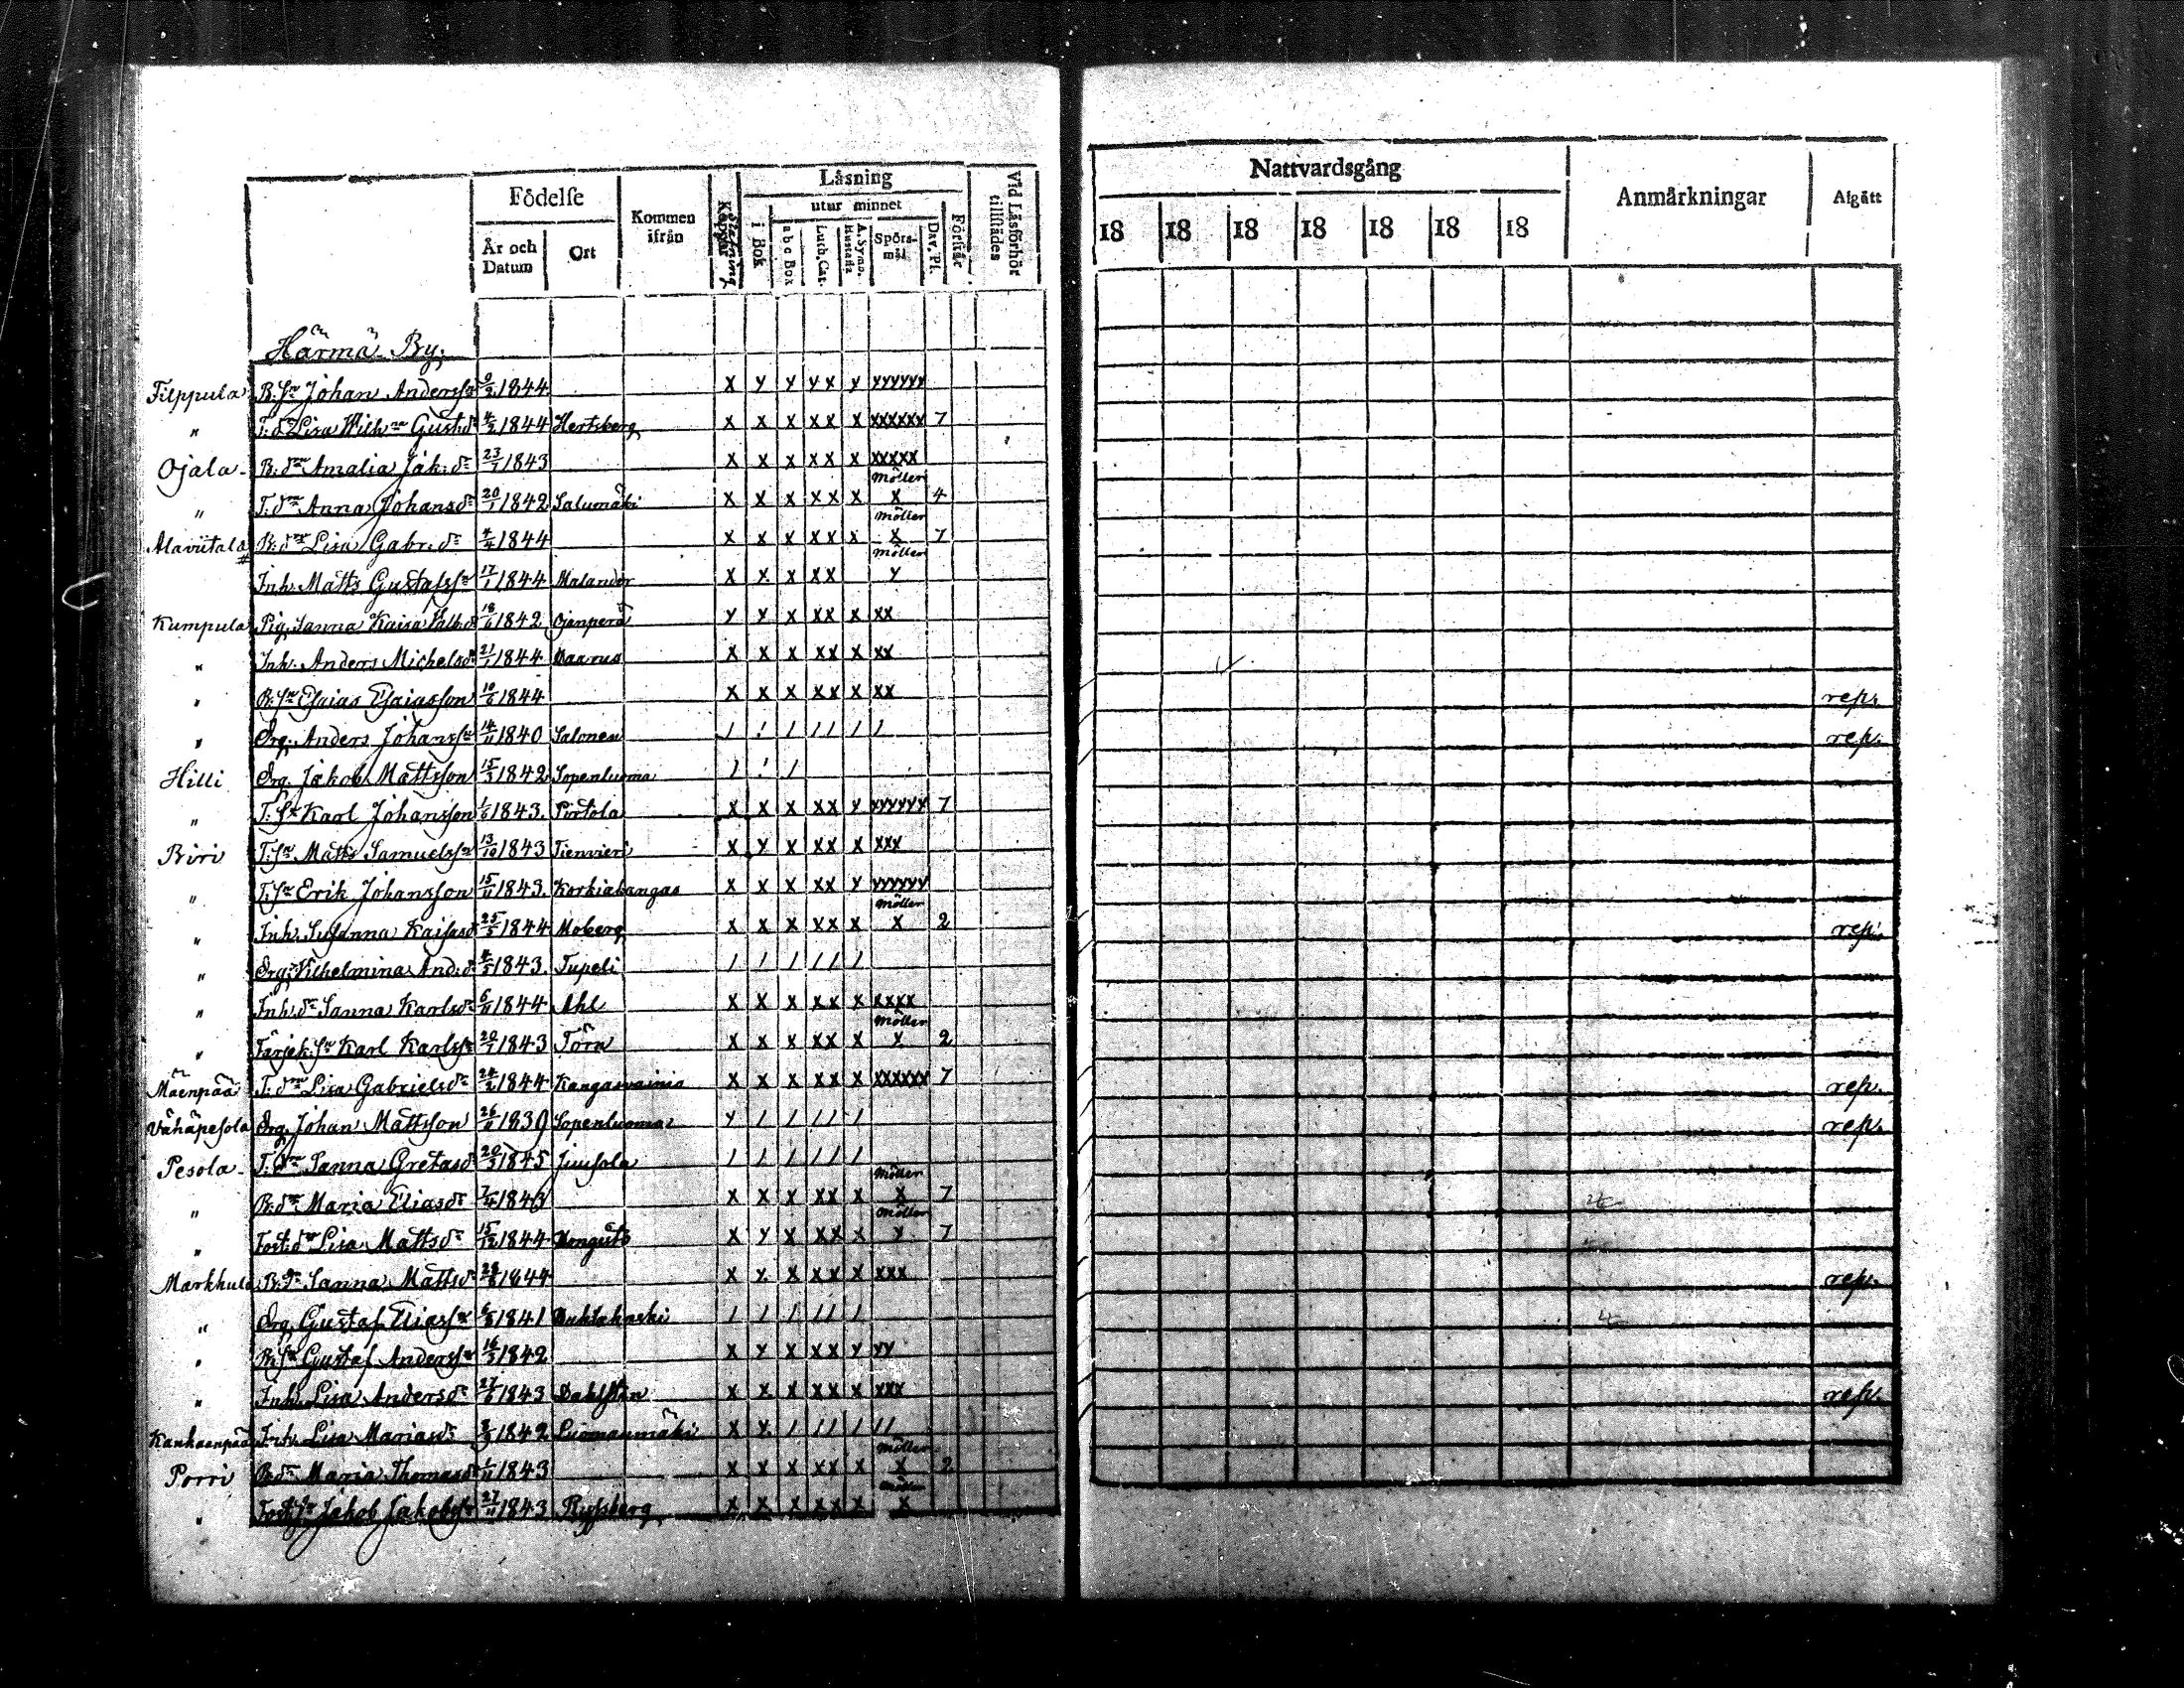 Födelse
År och Datum
Ort
Kommen ifrån
Stafning
Låsning
i Bok
utur minnet
a b c Bok
Luth. Cat.
A. Symb. Hustafla
Spörsmål
Dav. Ps.
Förstår
Vid Låsförhör tillstädes
Nattvardsgång
18 18 18 18 18 18 18
Anmärkningar
Afgått
Härmä By.
Filppula B. sn Johan Anderssn 9/2 1844 X Y Y Y X Y YYYYYY
" T. dr Lisa Wilhna Gust. dr 4/2 1844 Hertsberg X X X X X X XXXXXX 7
Ojala B. dr Amalia Jak. dr 23/7 1843 X X X X X X XXXXX
" T. dr Anna Johansdr 20/1 1842 Salumäki X X X X X X Möller X 4
Alaviitala B. dr Lisa Gabr. dr 4/4 1844 X X X X X X Möller X 7
Inh. Matts Gustafssn 17/1 1844 Malander X X X X X Möller Y
Kumpula Pig. Sanna Kaisa 18/6 1842 Ojanperä Y Y X X X X XX
" Inh. Anders Michelsdr 21/1 1844 Daarus X X X X X X XX
" B. sn Esaias Esaiasson 10/6 1844 X X X X X X XX rep.
" Drg. Anders Johanssn 14/11 1840 Salonen / ! / / / / / rep.
Hilli Drg. Jakob Mattsson 15/3 1842 Sopenluoma / ! /
" T. sn Karl Johansson 1/6 1843. Pirtola X X X X X Y YYYYYY 7
Biri T. sn Matts Samuelssn 13/10 1843 Tienvieri X Y X X X X XXX
" T. sn Erik Johansson 15/11 1843. Korkiakangas X X X X X Y YYYYYY
" Inh. Susanna Kaisasdr 25/5 1844 Moberg X X X X X X Möller X 2 rep.
" Drg. Vilhelmina And. dr 4/5 1843. Tupeli / / / / / /
" Inh. dr Sanna Karlsdr 6/11 1844 Ahl X X X X X X XXXX
" Färjek. sn Karl Karlssn 20/1 1843 Törn X X X X X X Möller X 2
Mäenpää T. dr Lisa Gabrielsdr 24/2 1844 Kangasvainio X X X X X X XXXXXX 7 rep.
Vähäpesola Drg. Johan Mattsson 26/11 1839 Sopenluoma Y / / / / / rep.
Pesola T. dr Sanna Gretasdr 20/3 1845 Juusola / / / / / /
" B. dr Maria Eliasdr 7/4 1843 X X X X X X Möller X 7
" Fost. dr Lisa Mattsdr 15/12 1844 X Y X X X X Möller Y 7
Markkula B. dr Sanna Mattsdr 28/8 1844 X Y X X X X XXX rep.
" Drg. Gustaf Eliassn 6/5 1841 / / / / / /
" B. sn Gustaf Anderssn 16/3 1842 X Y X X X Y YY
" Inh. Lisa Andersdr 27/6 1843 Dahlsten X X X X X X XXX rep.
Kankaanpää Inh. Lisa Mariasdr 1842 Luomanmäki X Y / / / / //
Porri B. dr Maria Thomasdr 1/11 1843 X X X X X X Möller X 2
" Fost. sn Jakob Jakobssn 27/11 1843 Rypsberg X X X X X X Möller X